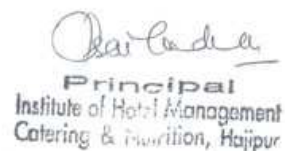 Principal
Institute of Hotel Management
Catering & Nutrition, Hajipur